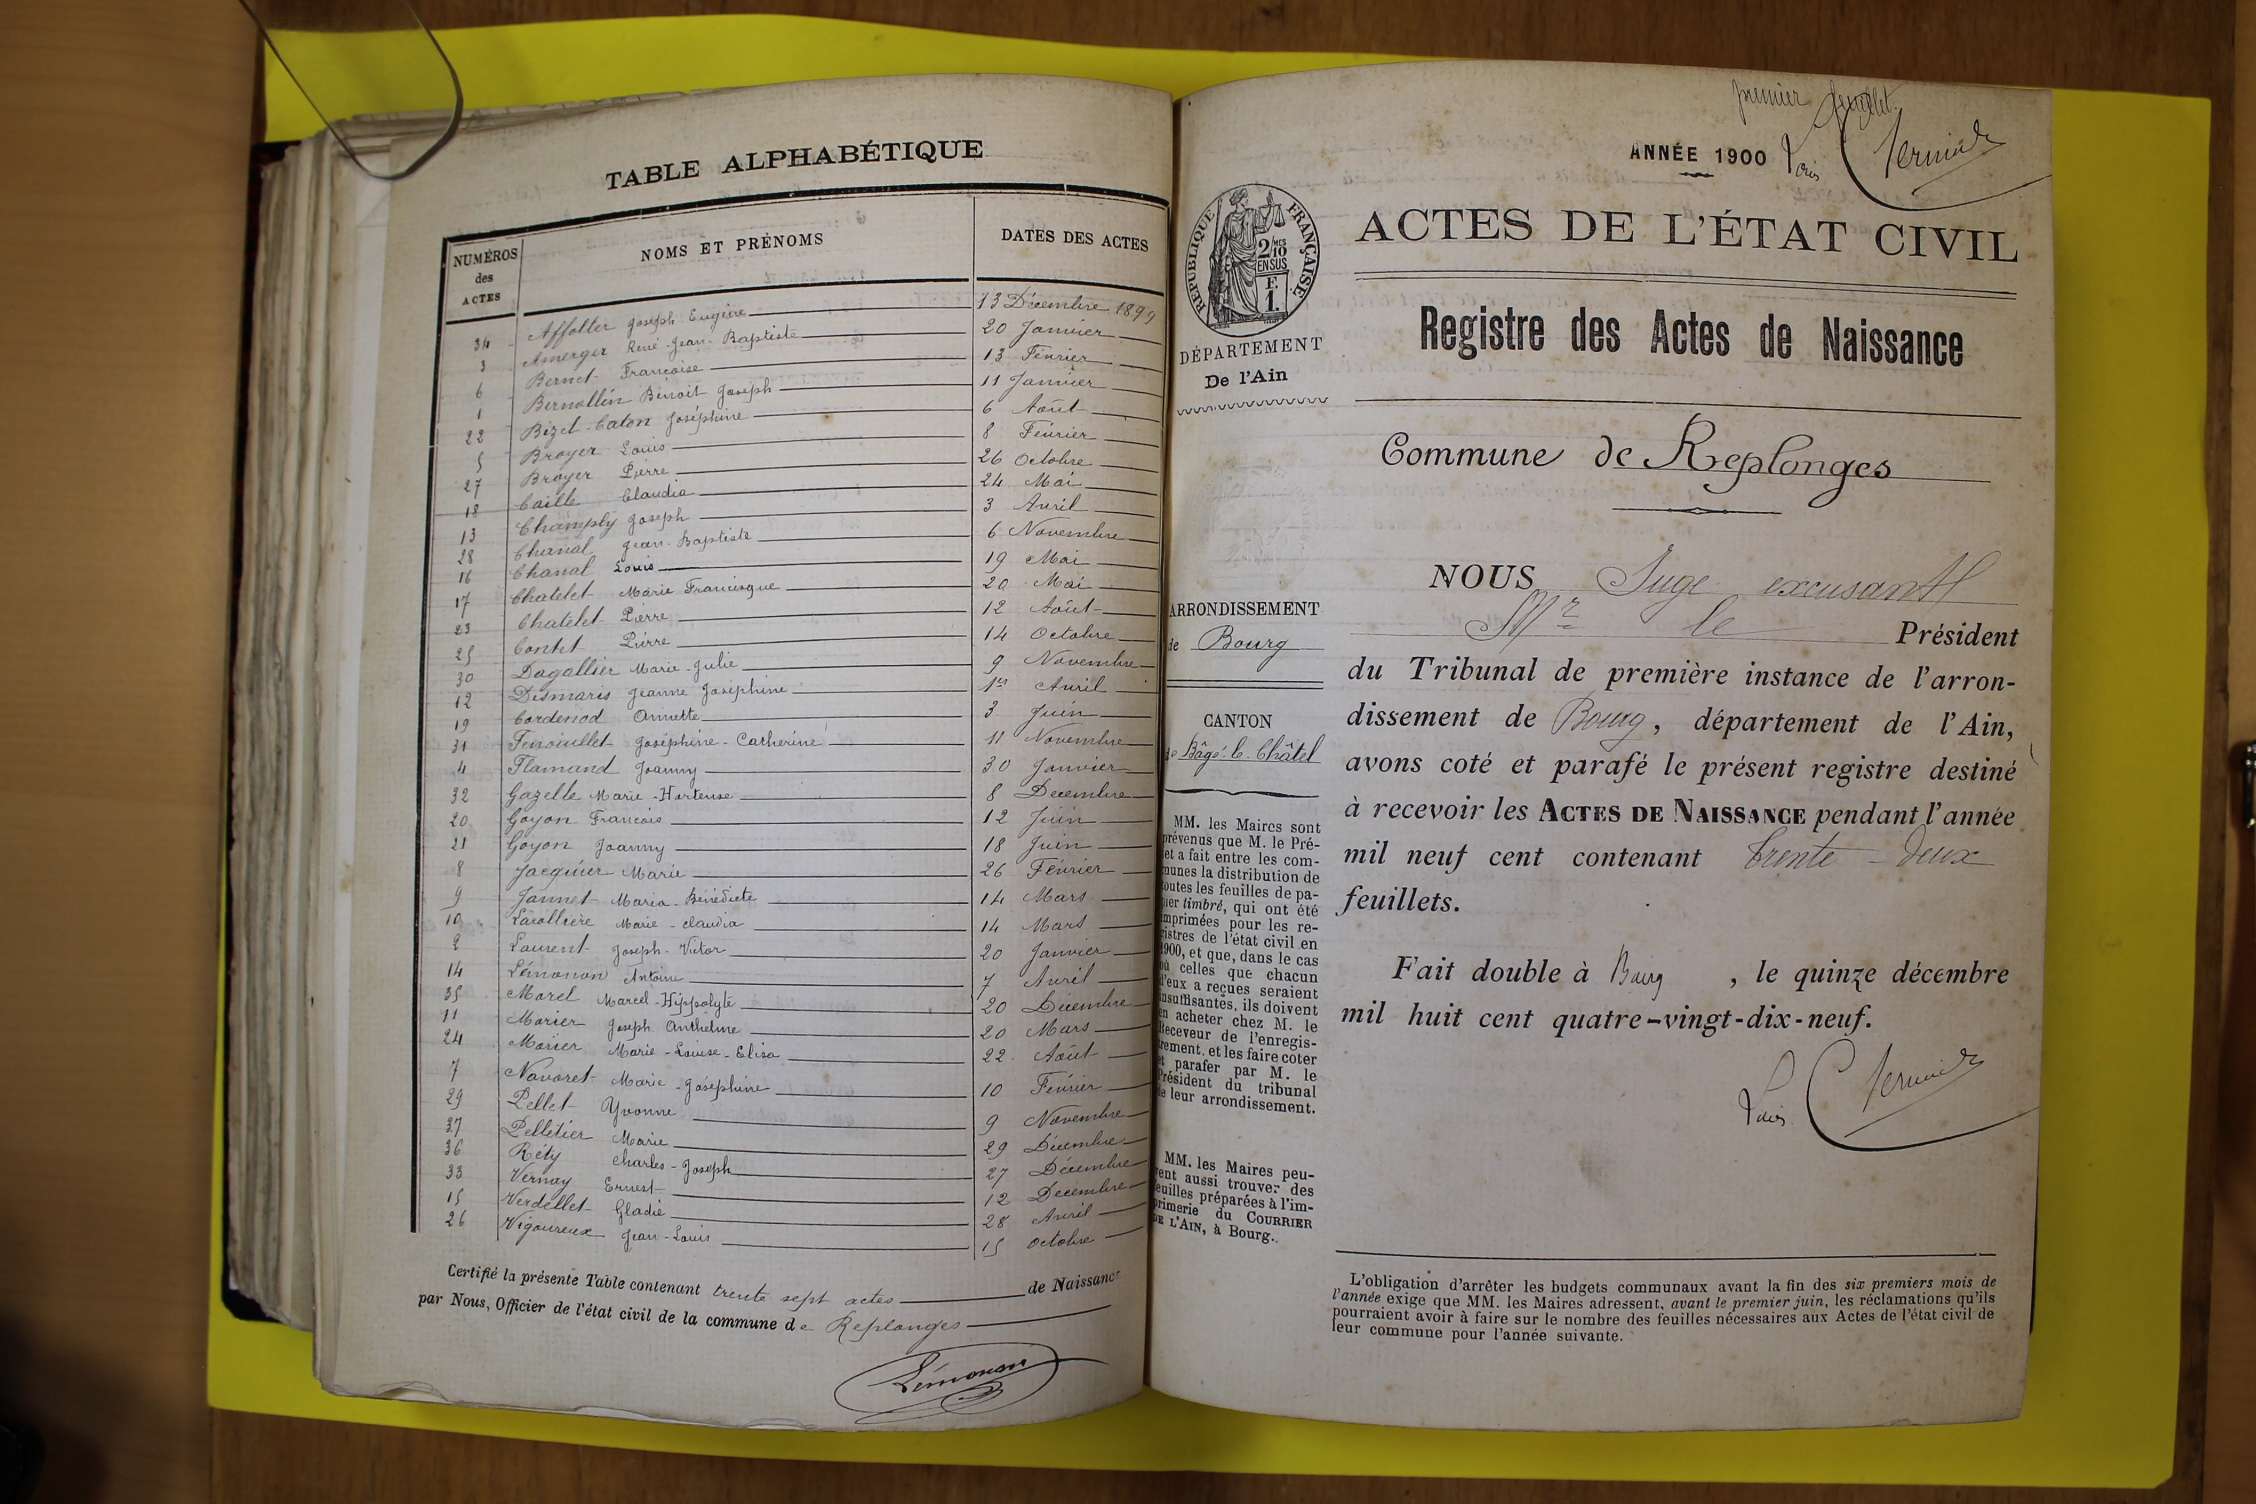 TABLE ALPHABÉTIQUE
NUMÉROS des ACTES NOMS ET PRÉNOMS DATES DES ACTES
34 Affolter Joseph-Eugène 13 Décembre 1899
3 Amerger René-Jean-Baptiste 20 Janvier
6 Bernet Françoise 13 Février
1 Bernollin Benoit Joseph 11 Janvier
22 Bizet-Caton Joséphine 6 Août
5 Broyer Louis 8 Février
27 Broyer Pierre 26 Octobre
18 Caille Claudia 24 Mai
13 Champly Joseph 3 Avril
28 Chanal Jean-Baptiste 6 Novembre
16 Chanal Louis 19 Mai
17 Chatelet Marie Francisque 20 Mai
23 Chatelet Pierre 12 Août
25 Contet Pierre 14 Octobre
30 Dagallier Marie-Julie 9 Novembre
12 Desmaris Jeanne Joséphine 1er Avril
19 Cordenod Annette 3 Juin
31 Fenouillet Joséphine-Catherine 11 Novembre
4 Flamand Joanny 30 Janvier
32 Gazelle Marie-Hortense 8 Décembre
20 Goyon François 12 Juin
21 Goyon Joanny 18 Juin
8 Jacquier Marie 26 Février
9 Jannet Maria-Bénédicte 14 Mars
10 Lacollière Marie-Claudia 14 Mars
2 Laurent Joseph-Victor 20 Janvier
14 Lémonon Antoine 7 Avril
35 Morel Marcel-Hippolyte 20 Décembre
11 Morier Joseph Anthelme 20 Mars
24 Morier Marie-Louise-Elisa 22 Août
7 Navoret Marie-Joséphine 10 Février
29 Pellet Yvonne 9 Novembre
37 Pelletier Marie 29 Décembre
36 Réty Charles-Joseph 27 Décembre
33 Vernay Ernest 12 Décembre
15 Verdellet Gladie 28 Avril
26 Vigoureux Jean-Louis 15 Octobre
Certifié la présente Table contenant trente sept actes de Naissance
par Nous, Officier de l'état civil de la commune de Replonges
Lémonon
premier feuillet
ANNÉE 1900
RÉPUBLIQUE FRANÇAISE
2/10 MES EN SUS
F. 1.
DÉPARTEMENT
De l'Ain
ACTES DE L'ÉTAT CIVIL
Registre des Actes de Naissance
Commune de Replonges
ARRONDISSEMENT
de Bourg
CANTON
de Bâgé-le-Châtel
MM. les Maires sont
prévenus que M. le Pré-
fet a fait entre les com-
munes la distribution de
toutes les feuilles de pa-
pier timbré, qui ont été
imprimées pour les re-
gistres de l'état civil en
1900, et que, dans le cas
où celles que chacun
d'eux a reçues seraient
insuffisantes, ils doivent
en acheter chez M. le
Receveur de l'enregis-
trement, et les faire coter
et parafer par M. le
Président du tribunal
de leur arrondissement.
MM. les Maires peu-
vent aussi trouver des
feuilles préparées à l'im-
primerie du COURRIER
DE L'AIN, à Bourg.
NOUS Juge excusant
Mr le Président
du Tribunal de première instance de l'arron-
dissement de Bourg, département de l'Ain,
avons coté et parafé le présent registre destiné
à recevoir les ACTES DE NAISSANCE pendant l'année
mil neuf cent contenant trente-deux
feuillets.
Fait double à Bourg, le quinze décembre
mil huit cent quatre-vingt-dix-neuf.
L'obligation d'arrêter les budgets communaux avant la fin des six premiers mois de
l'année exige que MM. les Maires adressent, avant le premier juin, les réclamations qu'ils
pourraient avoir à faire sur le nombre des feuilles nécessaires aux Actes de l'état civil de
leur commune pour l'année suivante.